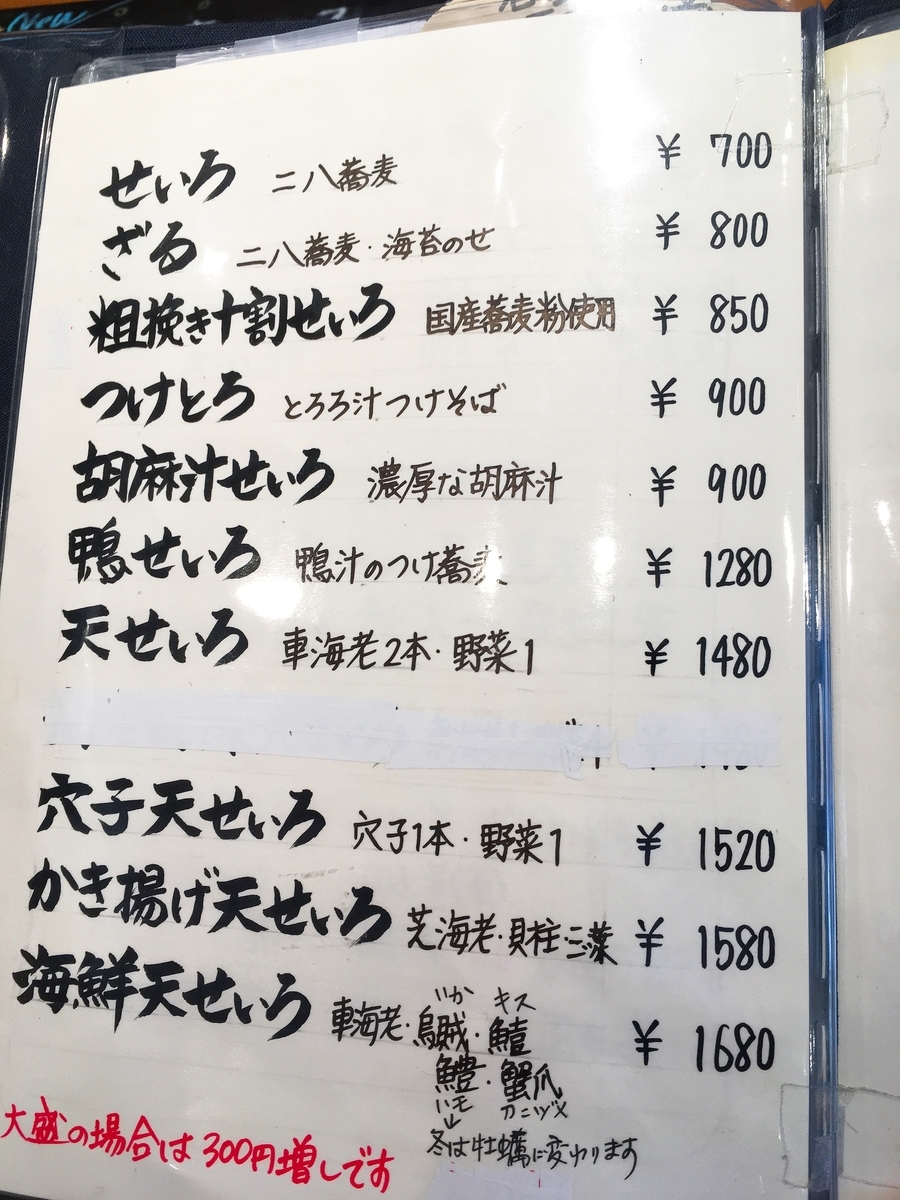 New
せいろ 二八蕎麦 ¥ 700
ざる 二八蕎麦・海苔のせ ¥ 800
粗挽き十割せいろ 国産蕎麦粉使用 ¥ 850
つけとろ とろろ汁つけそば ¥ 900
胡麻汁せいろ 濃厚な胡麻汁 ¥ 900
鴨せいろ 鴨汁のつけ蕎麦 ¥ 1280
天せいろ 車海老2本・野菜1 ¥ 1480
穴子天せいろ 穴子1本・野菜1 ¥ 1520
かき揚げ天せいろ 芝海老・貝柱・三ツ葉 ¥ 1580
いか キス
海鮮天せいろ 車海老・烏賊・鱚 ¥ 1680
鱧・蟹爪
ハモ カニヅメ
↓
冬は牡蠣に変わります
大盛の場合は300円増しです